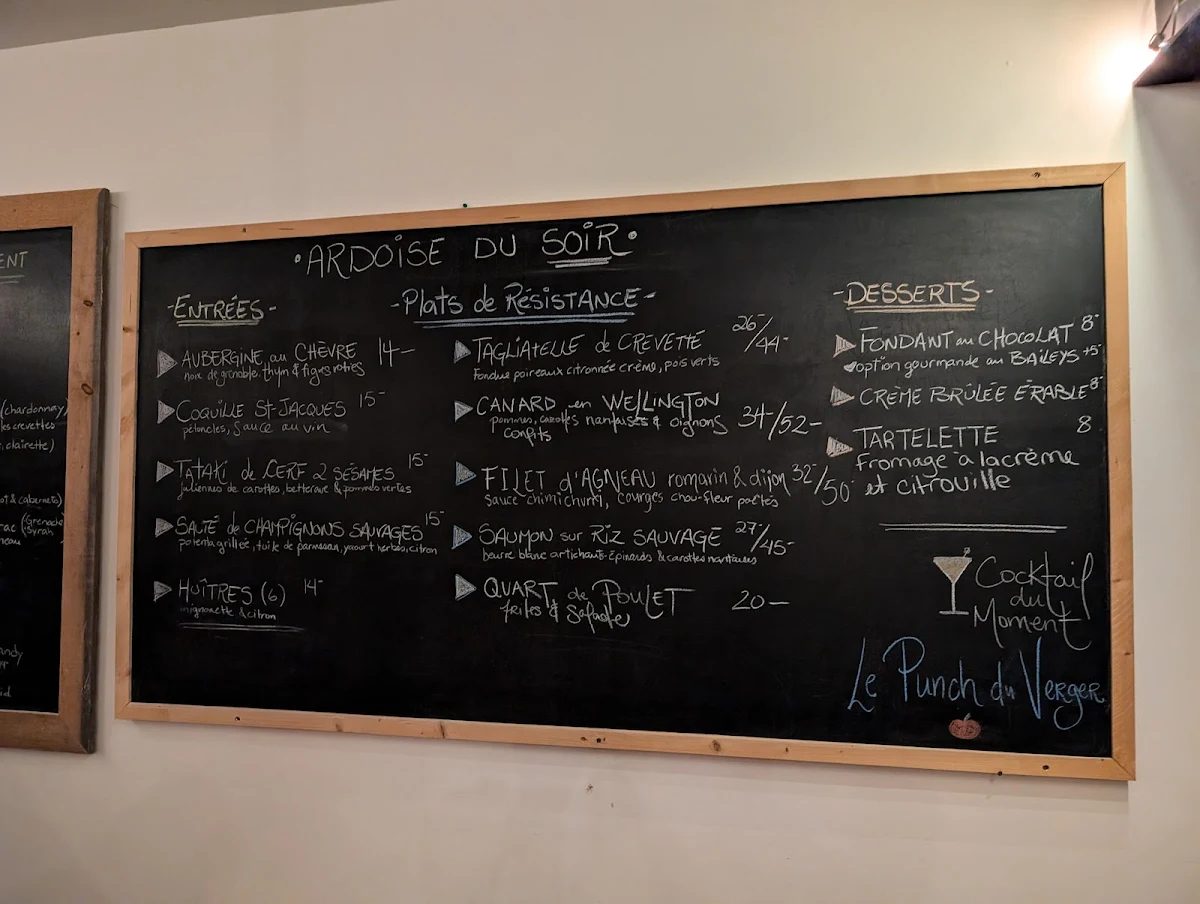 ENT
(chardonnay)
les crevettes
, clairette)
& cabernets)
(Grenache
Syrah
eau
andy
id
• ARDOISE DU SOIR •
- ENTRÉES -
AUBERGINE au CHÈVRE 14-
noix de grenoble, thym & figes roties
COQUILLE ST-JACQUES 15-
pétoncles, sauce au vin
TATAKI de CERF 2 SÉSAMES 15-
juliennes de carottes, betterave & pommes vertes
SAUTÉ de CHAMPIGNONS SAUVAGES 15-
polenta grillée, tuile de parmesan, yaourt herbes, citron
HUÎTRES (6) 14-
mignonette & citron
- Plats de RÉSISTANCE -
TAGLIATELLE de CREVETTE 26-/44-
Fondue poireaux citronnée crème, pois verts
CANARD en WELLINGTON 34-/52-
pommes, carottes nantaises & oignons
confits
FILET d'AGNEAU romarin & dijon 32-/50-
sauce chimichurri, courges chou-fleur
SAUMON sur RIZ SAUVAGE 27-/45-
beurre blanc artichauts épinards & carottes nantaises
QUART de POULET 20-
frites & Salade
- DESSERTS -
FONDANT au CHOCOLAT 8-
option gourmande au BAILEYS +5-
CRÈME BRÛLÉE ÉRABLE 8-
TARTELETTE 8
fromage à la crème
et citrouille
Cocktail
du
Moment
Le Punch du Verger